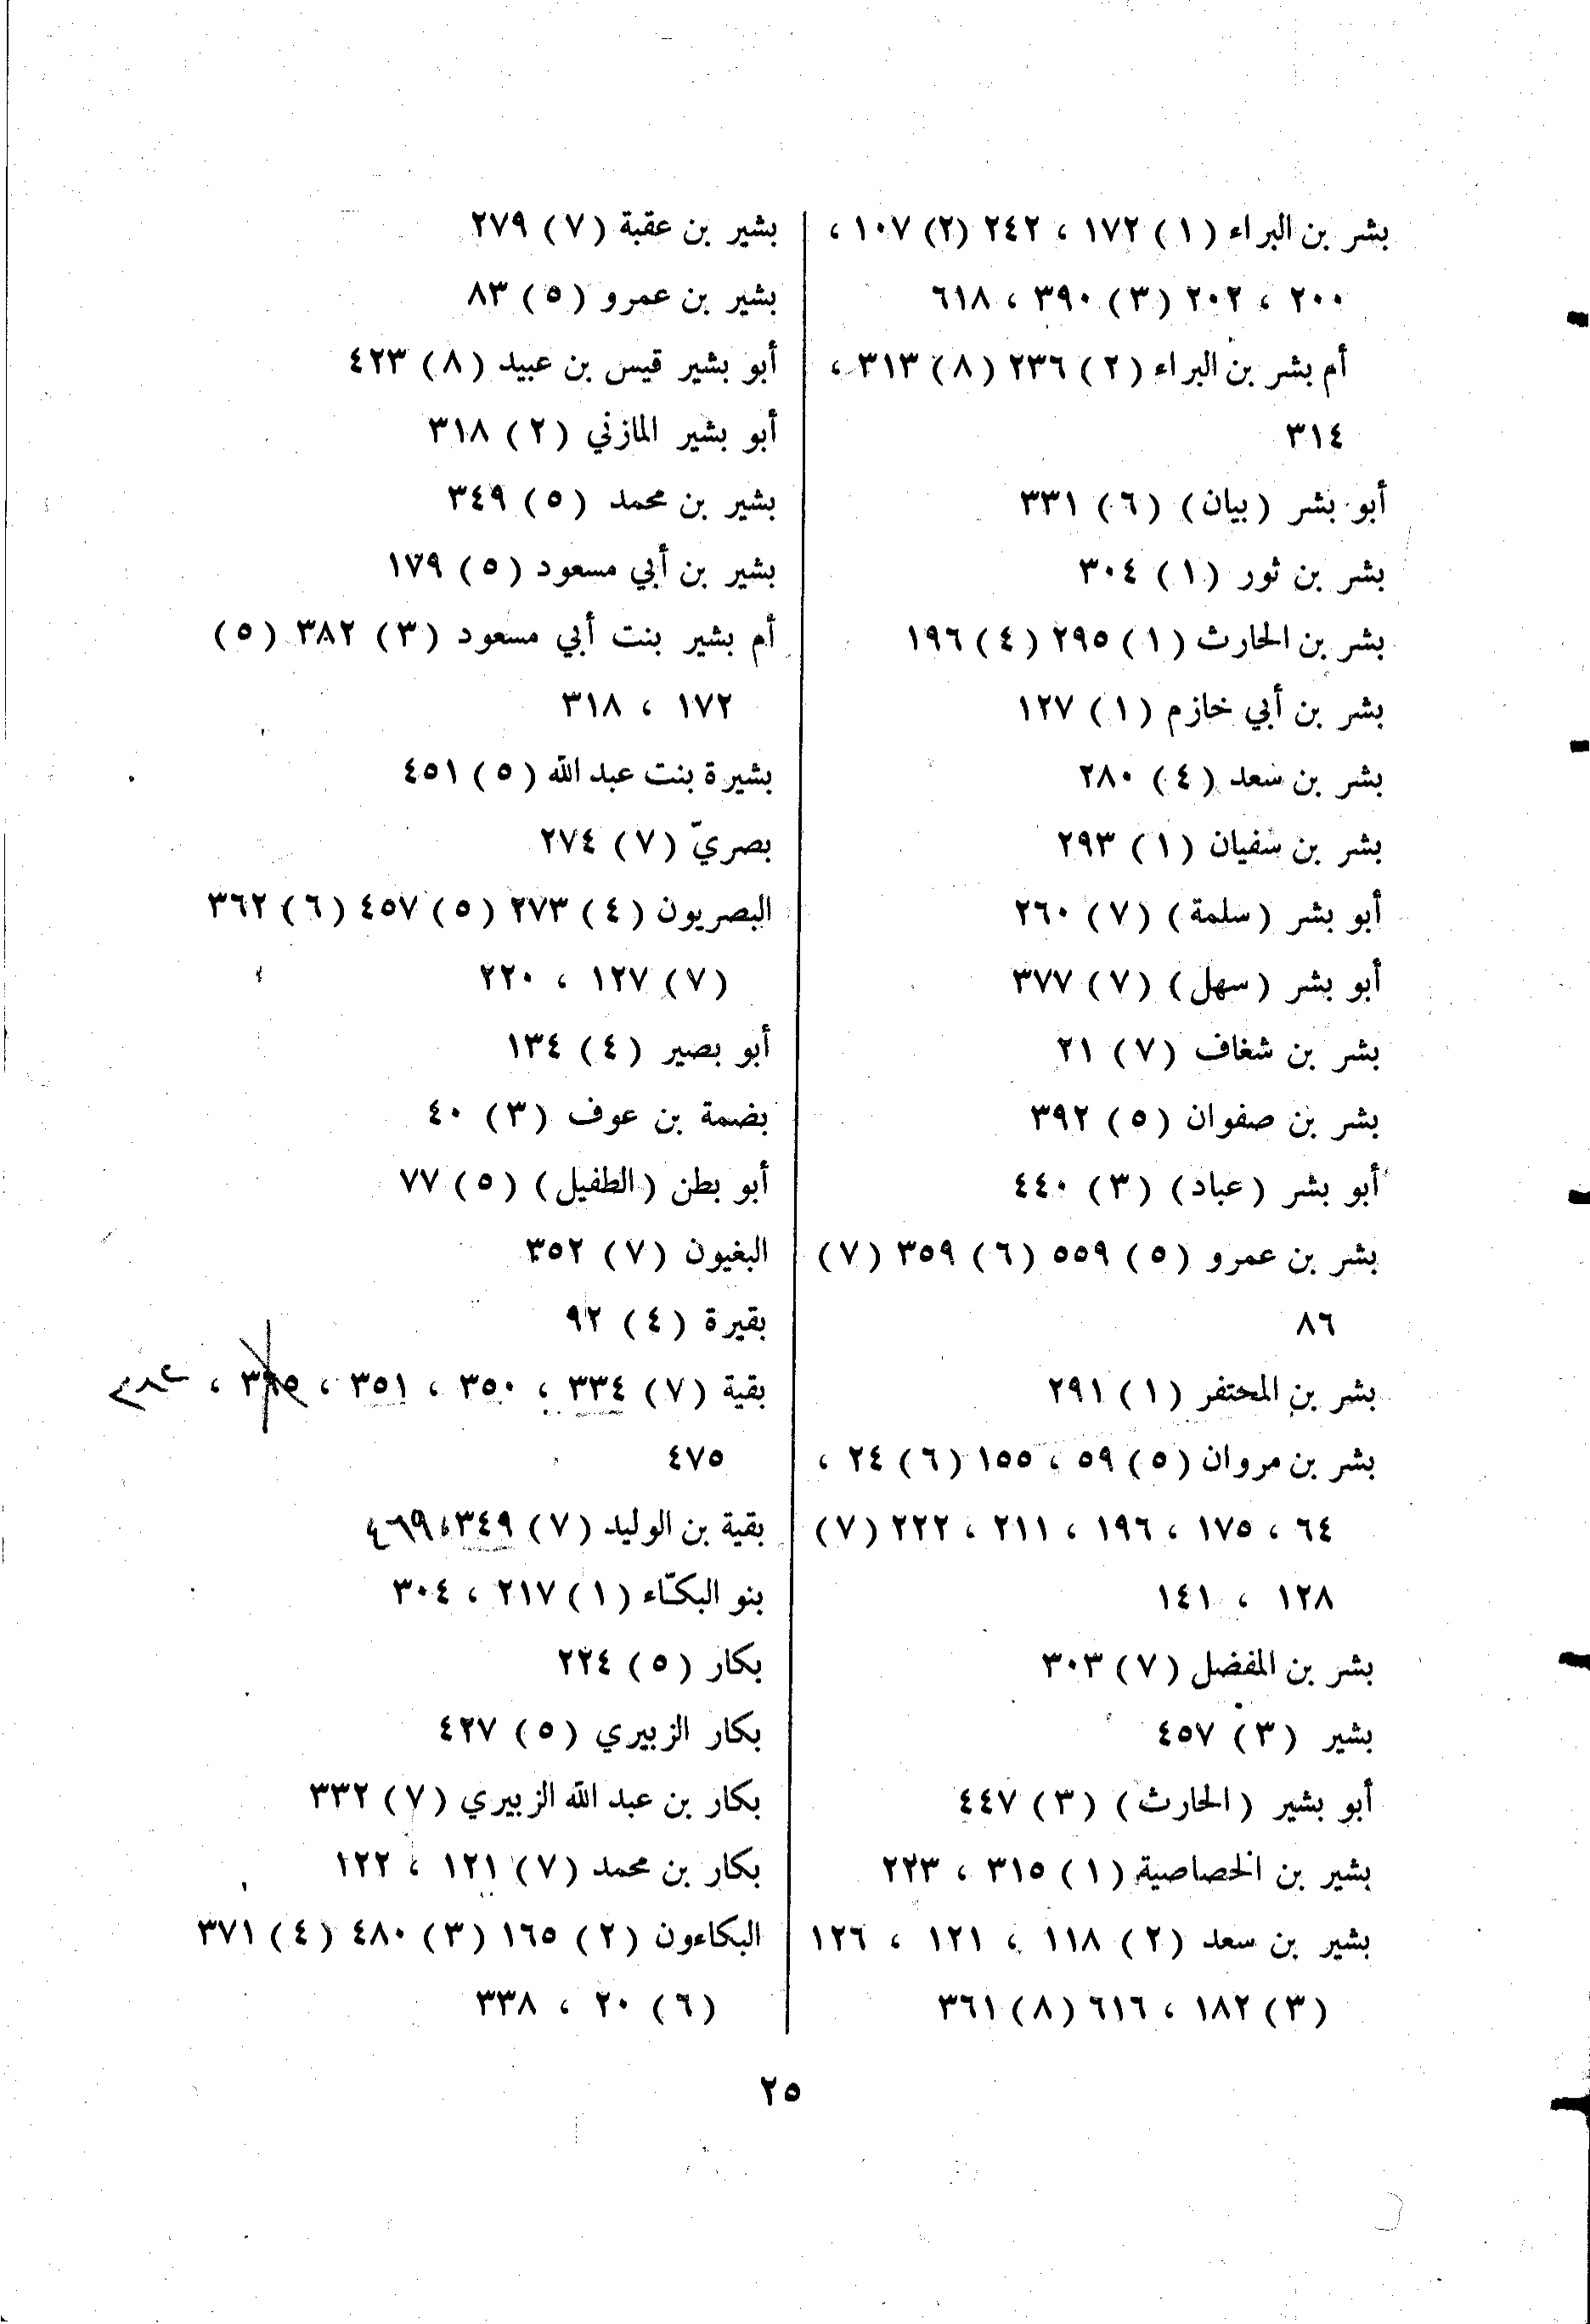 بشر بن البراء (١) ١٧٢ ، ٢٤٢ (٢) ١٠٧ ،
٢٠٠ ، ٢٠٢ (٣) ٣٩٠ ، ٦١٨
أم بشر بن البراء (٢) ٢٣٦ (٨) ٣١٣ ،
٣١٤
أبو بشر (بيان) (٦) ٣٣١
بشر بن ثور (١) ٣٠٤
بشر بن الحارث (١) ٢٩٥ (٤) ١٩٦
بشر بن أبي خازم (١) ١٢٧
بشر بن سعد (٤) ٢٨٠
بشر بن سفيان (١) ٢٩٣
أبو بشر (سلمة) (٧) ٢٦٠
أبو بشر (سهل) (٧) ٣٧٧
بشر بن شغاف (٧) ٢١
بشر بن صفوان (٥) ٣٩٢
أبو بشر (عباد) (٣) ٤٤٠
بشر بن عمرو (٥) ٥٥٩ (٦) ٣٥٩ (٧)
٨٦
بشر بن المحتفر (١) ٢٩١
بشر بن مروان (٥) ٥٩ ، ١٥٥ (٦) ٢٤ ،
٦٤ ، ١٧٥ ، ١٩٦ ، ٢١١ ، ٢٢٢ (٧)
١٢٨ ، ١٤١
بشر بن المفضل (٧) ٣٠٣
بشير (٣) ٤٥٧
أبو بشير (الحارث) (٣) ٤٤٧
بشير بن الخصاصية (١) ٣١٥ ، ٢٢٣
بشير بن سعد (٢) ١١٨ ، ١٢١ ، ١٢٦
(٣) ١٨٢ ، ٦١٦ (٨) ٣٦١
بشير بن عقبة (٧) ٢٧٩
بشير بن عمرو (٥) ٨٣
أبو بشير قيس بن عبيد (٨) ٤٢٣
أبو بشير المازني (٢) ٣١٨
بشير بن محمد (٥) ٣٤٩
بشير بن أبي مسعود (٥) ١٧٩
أم بشير بنت أبي مسعود (٣) ٣٨٢ (٥)
١٧٢ ، ٣١٨
بشيرة بنت عبد الله (٥) ٤٥١
بصريّ (٧) ٢٧٤
البصريون (٤) ٢٧٣ (٥) ٤٥٧ (٦) ٣٦٢
(٧) ١٢٧ ، ٢٢٠
أبو بصير (٤) ١٣٤
بضمة بن عوف (٣) ٤٠
أبو بطن (الطفيل) (٥) ٧٧
البغيون (٧) ٣٥٢
بقيرة (٤) ٩٢
بقية (٧) ٣٣٤ ، ٣٥٠ ، ٣٥١ ، ،
٤٧٥
بقية بن الوليد (٧) ٣٤٩، ٤٦٩
بنو البكّاء (١) ٢١٧ ، ٣٠٤
بكار (٥) ٢٢٤
بكار الزبيري (٥) ٤٢٧
بكار بن عبد الله الزبيري (٧) ٣٣٢
بكار بن محمد (٧) ١٢١ ، ١٢٢
البكاءون (٢) ١٦٥ (٣) ٤٨٠ (٤) ٣٧١
(٦) ٢٠ ، ٣٣٨
٢٥